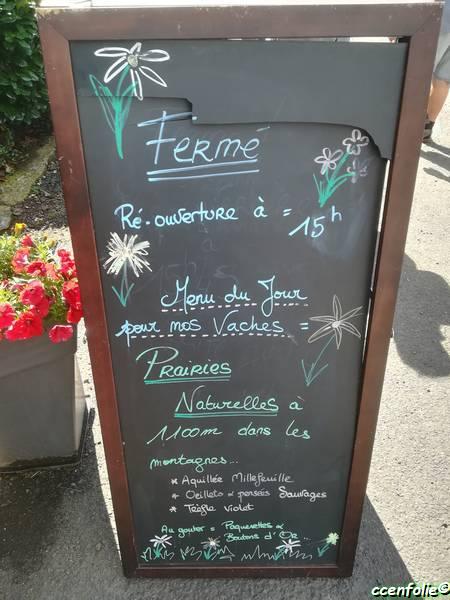 Fermé
Ré-ouverture à =
15h
Menu du Jour
pour nos Vaches =
Prairies
Naturelles à
1100m dans les
montagnes...
* Aquillée Millefeuille
* Oeillets & penseis Sauvages
* Trèfle Violet
Au gouter = Paquerettes &
Boutons d'Or...
ccenfolie©